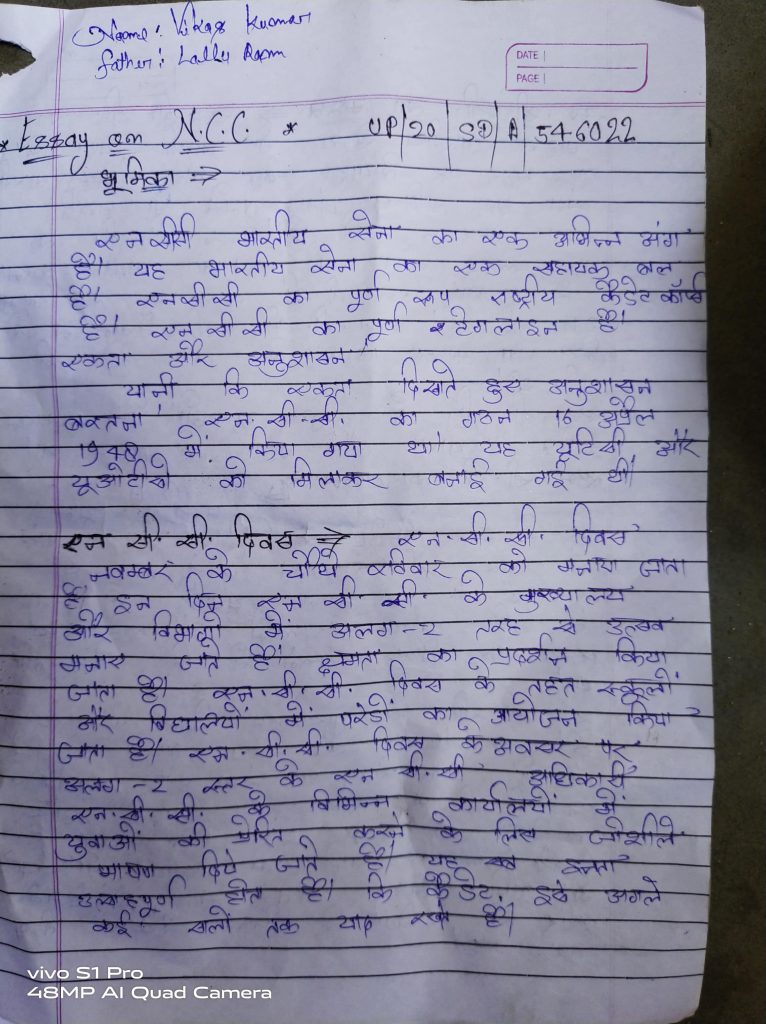 Name: Vikas Kumar
Father: Lallu Ram
DATE
PAGE
* Essay on N.C.C. * UP/20/SD/A/546022
भूमिका ⇒
एनसीसी भारतीय सेना का एक अभिन्न अंग
है। यह भारतीय सेना का एक सहायक बल
है। एनसीसी का पूर्ण रूप राष्ट्रीय कैडेट कॉर्प्स
है। एनसीसी का पूर्ण टेगलाइन है।
एकता और अनुशासन,
यानी कि एकता दिखाते हुए अनुशासन
बरतना, एन.सी.सी. का गठन 16 अप्रैल
1948 में किया गया था। यह यूटिसी और
यूओटीसी को मिलाकर बनाई गई थी।
एन सी. सी. दिवस ⇒ एन. सी. सी. दिवस
नवम्बर के चौथे रविवार को मनाया जाता
है। इन दिन एन सी सी. के मुख्यालय
और विभागों में अलग-२ तरह से उत्सव
मनाए जाते है। क्षमता का प्रदर्शन किया
जाता है। एन. सी. सी. दिवस के तहत स्कूलों
और विद्यालयों में परेडों का आयोजन किया
जाता है। एन. सी. सी. दिवस के अवसर पर
अलग-२ स्तर के एन सी. सी. अधिकारी
एन. सी. सी. के विभिन्न कार्यालयों में
युवाओं को प्रेरित करने के लिए जोशीले
भाषण दिये जाते है। यह सब इतना
उत्साहपूर्ण होता है। कि कैडेट इसे अगले
कई सालों तक याद रखते है।
vivo S1 Pro
48MP AI Quad Camera